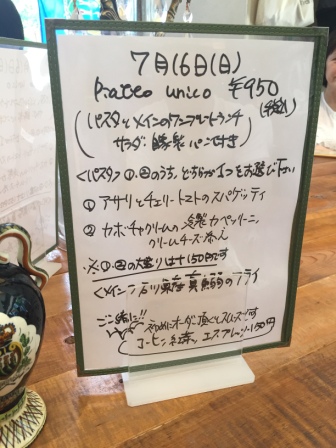 7月16日(日)
Piatto unico ¥950
(税込)
(パスタとメインのワンプレートランチ
サラダ 自家製パン付き)
<パスタ> ①、②のうち、どちらか1つをお選び下さい
① アサリとチェリートマトのスパゲッティ
② カボチャクリームの冷製カペッリーニ
クリームチーズ添え
※①、②の大盛りは+150円です
<メイン> 石川県産真鯛のフライ
ご一緒に!! 初めにオーダー頂くとスムーズです
(コーヒー、紅茶、エスプレッソ 150円)